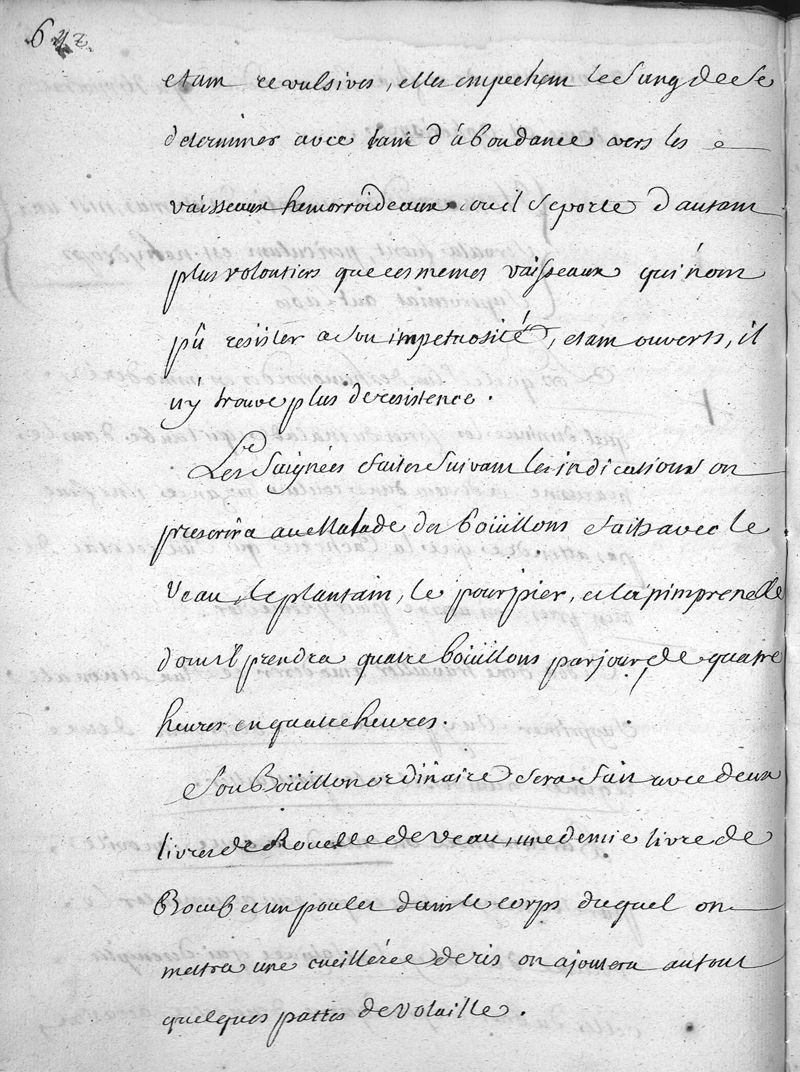 642.
etant revulsives, elles empechent le sang de se
determiner avec tant d'abondance vers les
vaisseaux hemorroïdeaux ou il se porte d'autant
plus volontiers que ces memes vaisseaux qui n'ont
pû resister a son impetuosité, etant ouverts, il
n'y trouve plus de resistence.
Les saignées faites suivant les indications on
prescrira au Malade des boüillons faits avec le
veau, le plantain, le pourpier, et la pimprenelle
dont il prendra quatre boüillons par jour, de quatre
heures en quatre heures.
Son Boüillon ordinaire sera fait avec deux
livres de Rouelle de veau, une demie livre de
Boeuf et un poulet dans le corps duquel on
mettra une cueillérée de ris on ajoutera autour
quelques pattes de volaille.